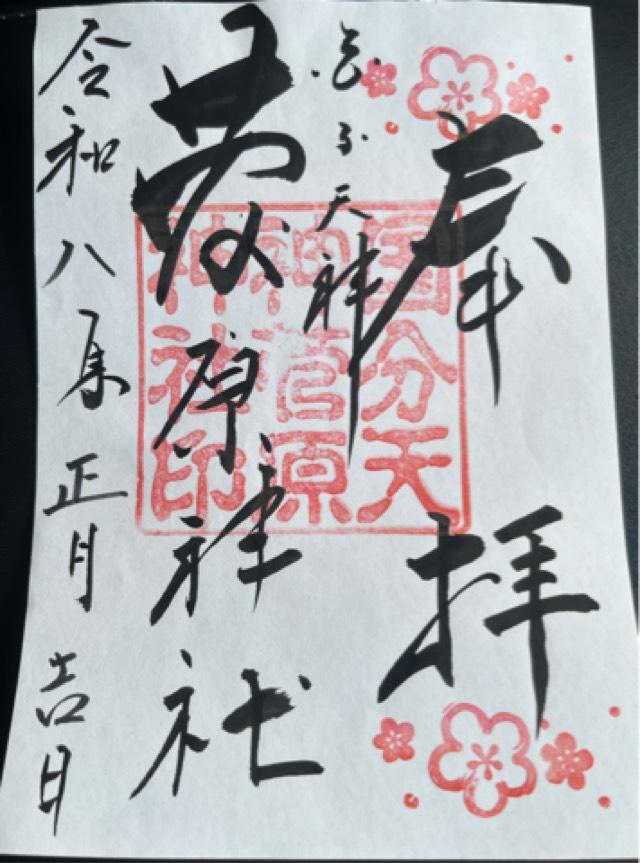 奉拝
天神
菅原神社
令和八年正月吉日
国分天
神菅原
神社印